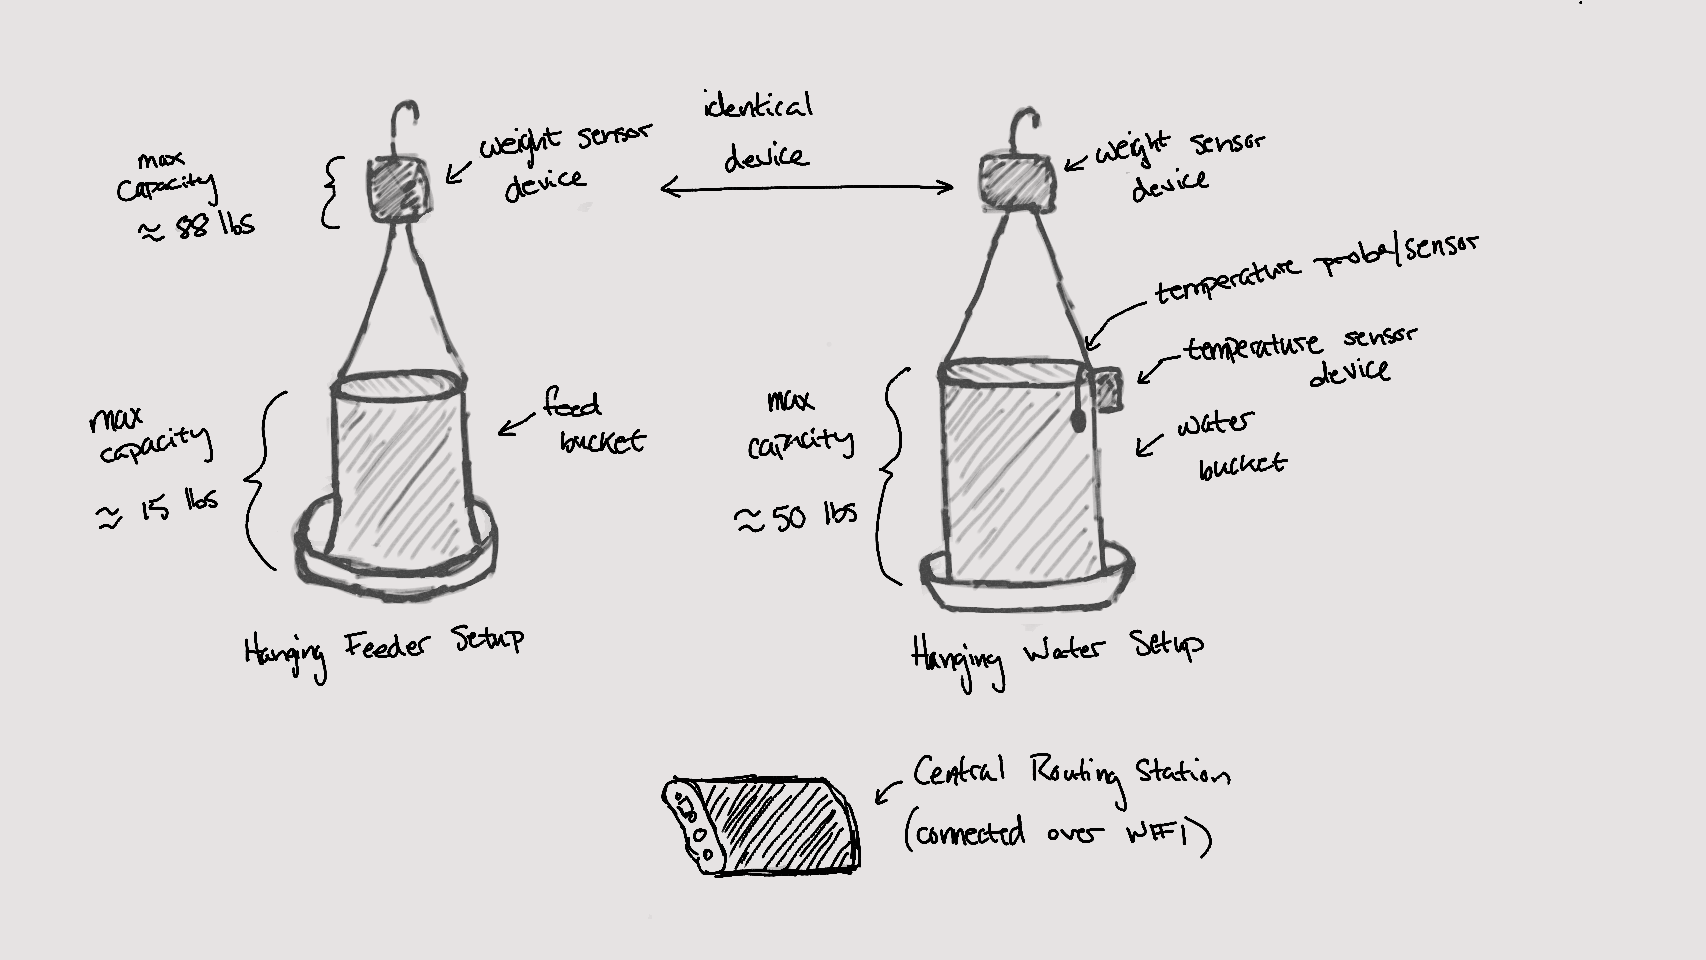 max
capacity
≈ 88 lbs
weight sensor
device
identical
device
weight sensor
device
temperature probe/sensor
temperature sensor
device
max
capacity
≈ 15 lbs
feed
bucket
max
capacity
≈ 50 lbs
water
bucket
Hanging Feeder Setup
Hanging Water Setup
Central Routing Station
(connected over WIFI)